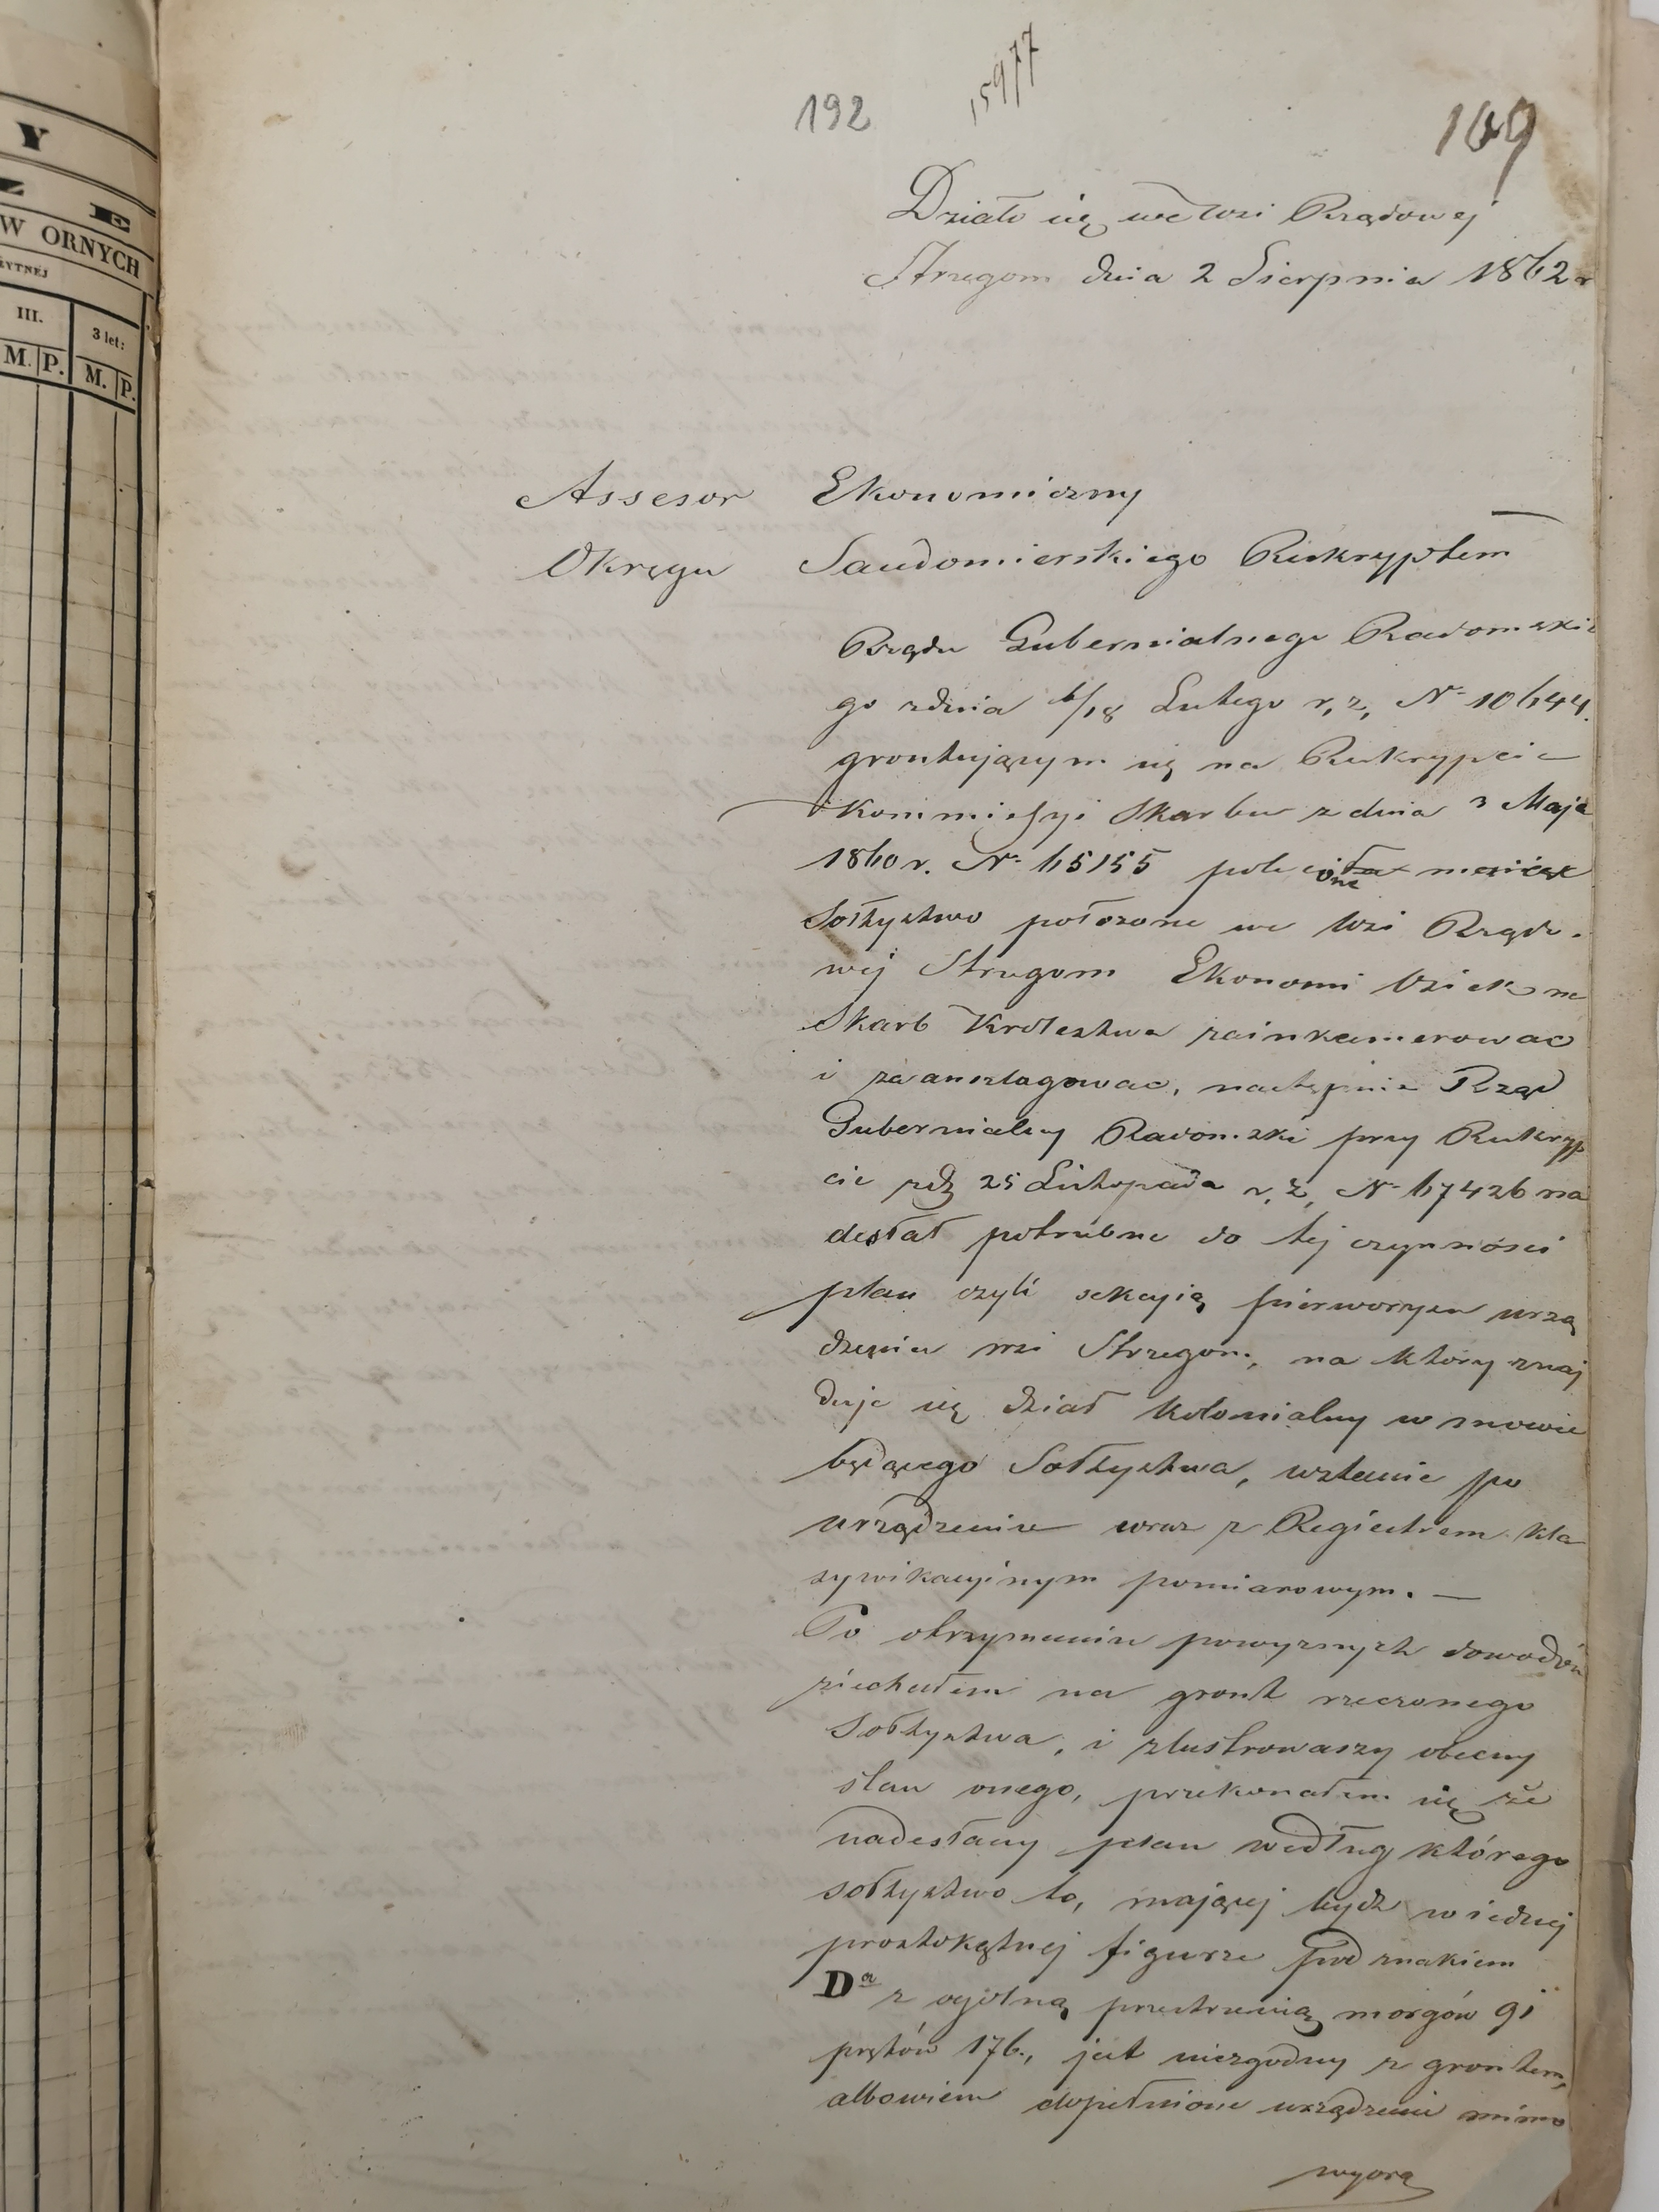 Y
Z E
W ORNYCH
ŻYTNEJ
III.
3 let:
M. P. M. P.
192
15977
169
Działo się we Wsi Rządowej
Strzegom dnia 2 Sierpnia 1862 r
Assesor Ekonomiczny
Okręgu Sandomierskiego Reskryptem
Rządu Gubernialnego Radomskie
go zdnia 6/18 Lutego r, z, No 10644.
grontującym się na Reskrypcie
Kommissyi Skarbu z dnia 3 Maja
1860 r. No 65155
Sołtystwo położone we Wsi Rządo-
wej Strzegom Ekonomi
Skarb Królestwa zainkamerowac
i zaanszlagowac, następnie Rząd
Gubernialny Radomski przy Reskryp
cie zdz 25 Listopada r, z, No 67426 na
desłał potrzebne do tej czynności
plan czyli sekcyią pierworysu urzą
dzenia wsi Strzegom, na który znaj
duje się dział kolonialny w mowie
będącego Sołtystwa, wstanie po
urządzeniu wraz z Regiestrem kla
sywikacyinym pomiarowym. —
Po otrzymaniu powyznych dowodów
ziechałem na gront rzeczonego
Sołtystwa, i zlustrowaszy obecny
stan onego, przekonałem się że
nadesłany plan według którego
sołtystwo to, mającej bydz w iednej
prostokątnej figurze pod znakiem
Da z ogólną przestrzenią morgów 91
prętów 176., jest niezgodny z grontem,
albowiem dopełnione urządzenie mimo
wyora